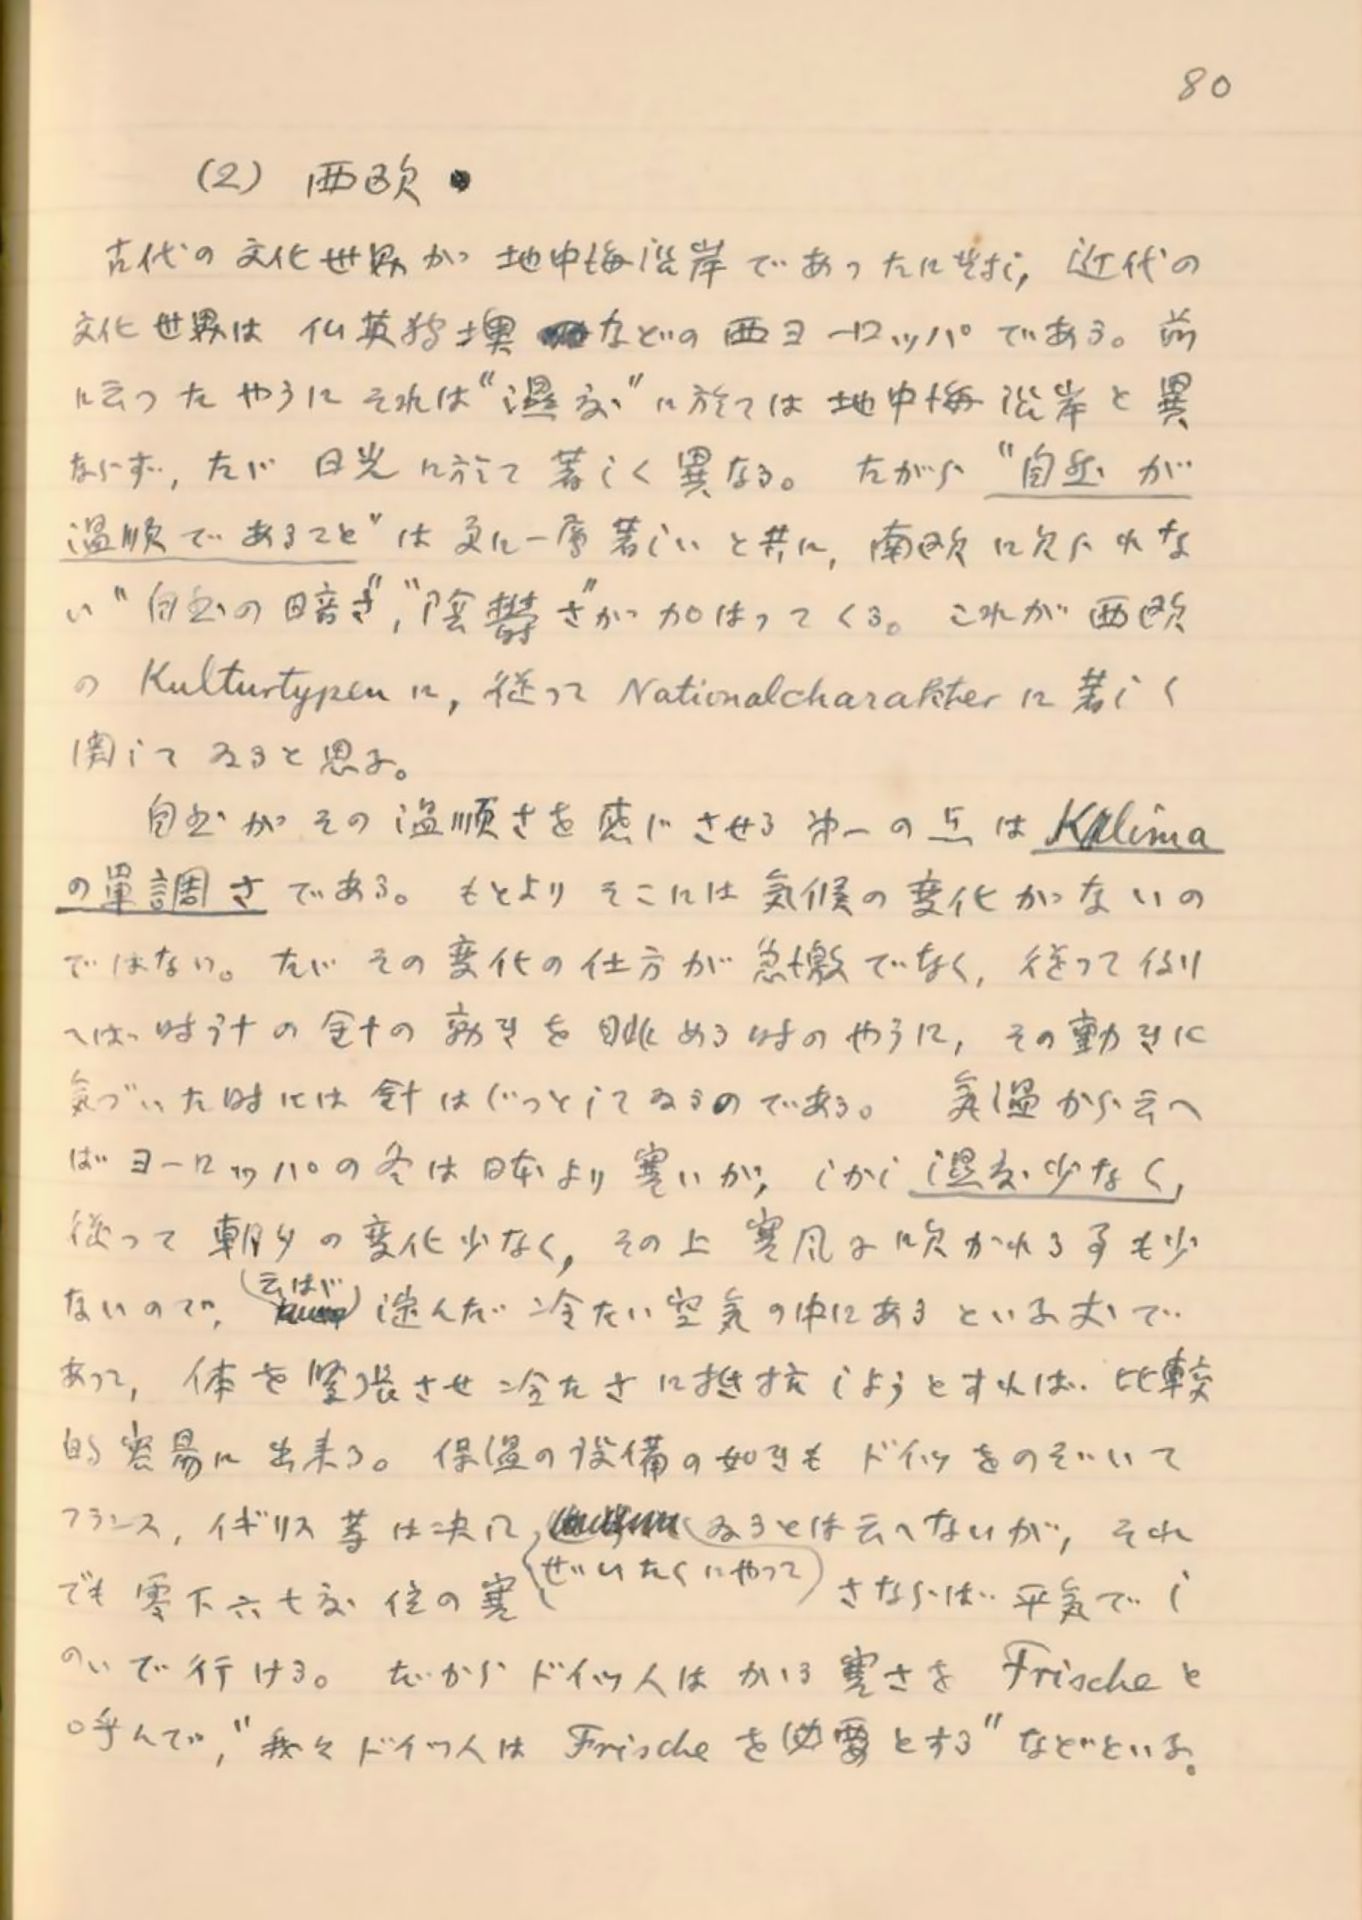 80
(2) 西欧
古代の文化世界が地中海沿岸であったに対し, 近代の
文化世界は 仏英独墺などの西ヨーロッパである。前
に云ったやうにそれは“湿度”に於ては地中海沿岸と異
ならず, たゞ 日光に於て著しく異なる。 だから“自然が
温順であること”は更に一層著しいと共に, 南欧に欠られな
い“自然の暗さ”,“陰鬱さ”が加はってくる。これが西欧
の Kulturtypen に, 従って Nationalcharakter に著しく
関してゐると思ふ。
自然がその温順さを感じさせる第一の点は Klima
の単調さである。もとよりそこには気候の変化がないの
ではない。たゞその変化の仕方が急激でなく, 従って例
へば時計の針の動きを眺める時のやうに, その動きに
気づいた時には針はじっとしてゐるのである。 気温から云へ
ばヨーロッパの冬は日本より寒いが, しかし湿度少なく,
従って朝夕の変化少なく, その上寒風に吹かれる事も少
ないので, (云はゞ) 淀んだ冷たい空気の中にあるといふ丈で
あって, 体を緊張させ冷たさに抵抗しようとすれば比較
的容易に出来る。保温の設備の如きもドイツをのぞいて
フランス, イギリス等は決して ゐるとは云へないが, それ
(ぜいたくにやって)
でも零下六七度位の寒さならば平気でし
のいで行ける。だからドイツ人はかゝる寒さを Frische と
呼んで,“我々ドイツ人は Frische を必要とする”などといふ。